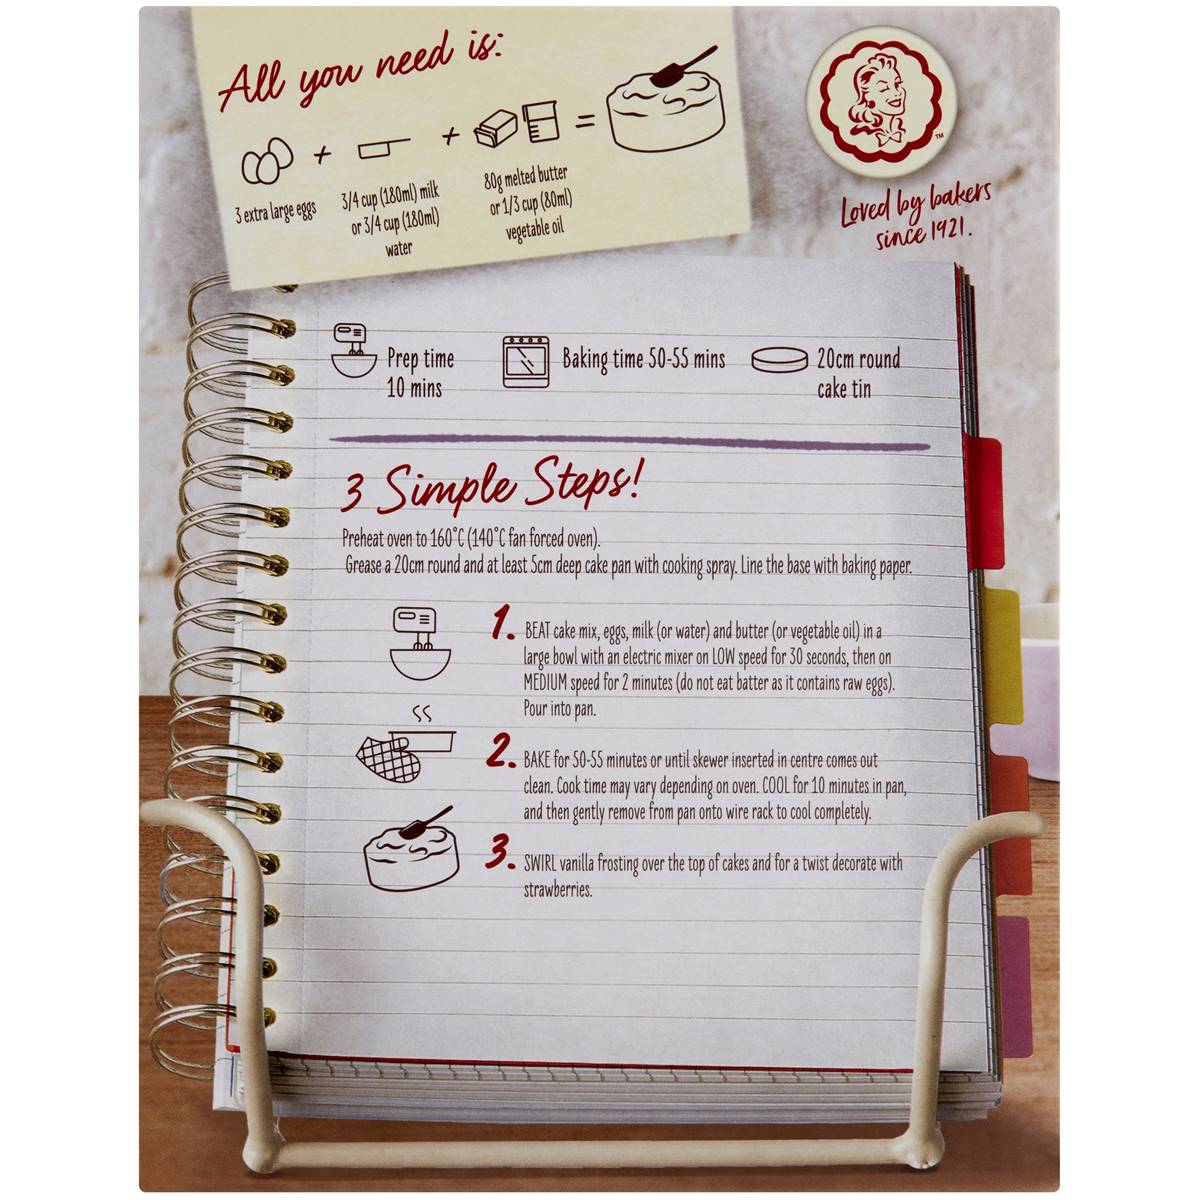 All you need is:
+ + =
3 extra large eggs
3/4 cup (180ml) milk
or 3/4 cup (180ml)
water
80g melted butter
or 1/3 cup (80ml)
vegetable oil
TM
Loved by bakers
since 1921.
Prep time
10 mins
Baking time 50-55 mins
20cm round
cake tin
3 Simple Steps!
Preheat oven to 160°C (140°C fan forced oven).
Grease a 20cm round and at least 5cm deep cake pan with cooking spray. Line the base with baking paper.
1. BEAT cake mix, eggs, milk (or water) and butter (or vegetable oil) in a
large bowl with an electric mixer on LOW speed for 30 seconds, then on
MEDIUM speed for 2 minutes (do not eat batter as it contains raw eggs).
Pour into pan.
2. BAKE for 50-55 minutes or until skewer inserted in centre comes out
clean. Cook time may vary depending on oven. COOL for 10 minutes in pan,
and then gently remove from pan onto wire rack to cool completely.
3. SWIRL vanilla frosting over the top of cakes and for a twist decorate with
strawberries.